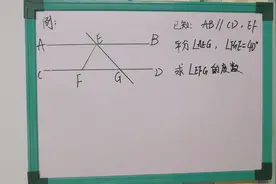 图:
已知: AB // CD, EF
平分∠AEG, ∠FGE=40°
求∠EFG的度数
A
E
B
C
F
G
D